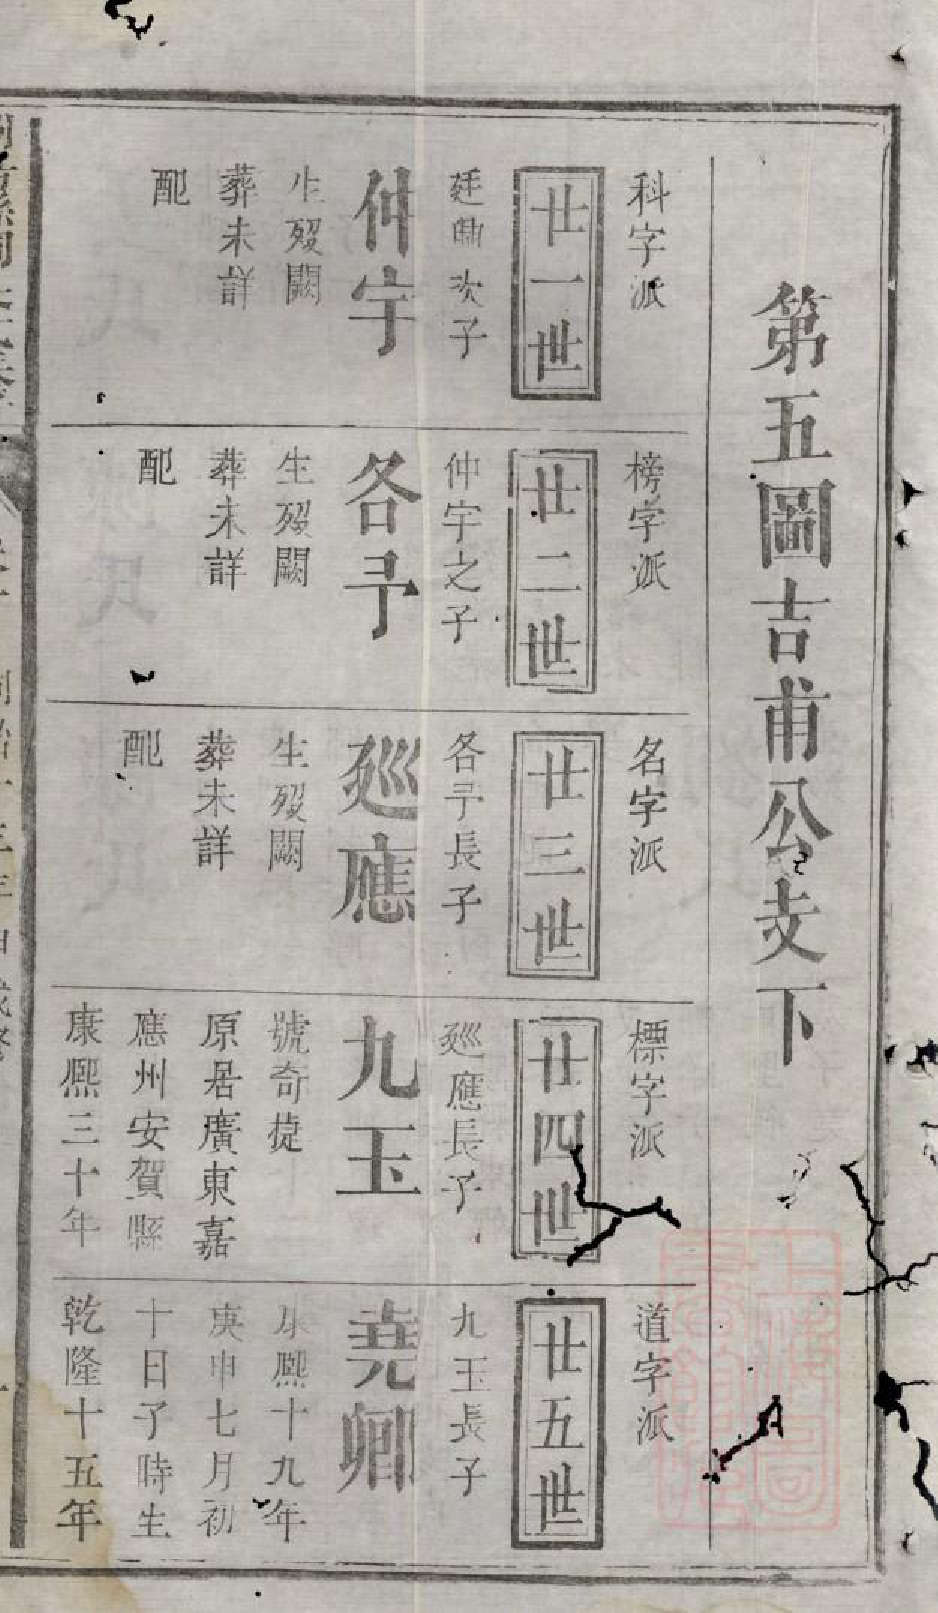 第五圖吉甫公支下
科字派
廿一世
廷勛次子
仲宇
生歿闕
葬未詳
配
榜字派
廿二世
仲宇之子
各予
生歿闕
葬未詳
配
名字派
廿三世
各予長子
廵應
生歿闕
葬未詳
配
標字派
廿四世
廵應長子
九玉
號奇㨗
原居廣東嘉
應州安賀縣
康熙三十年
道字派
廿五世
九玉長子
堯卿
康熙十九年
庚申七月初
十日子時生
乾隆十五年